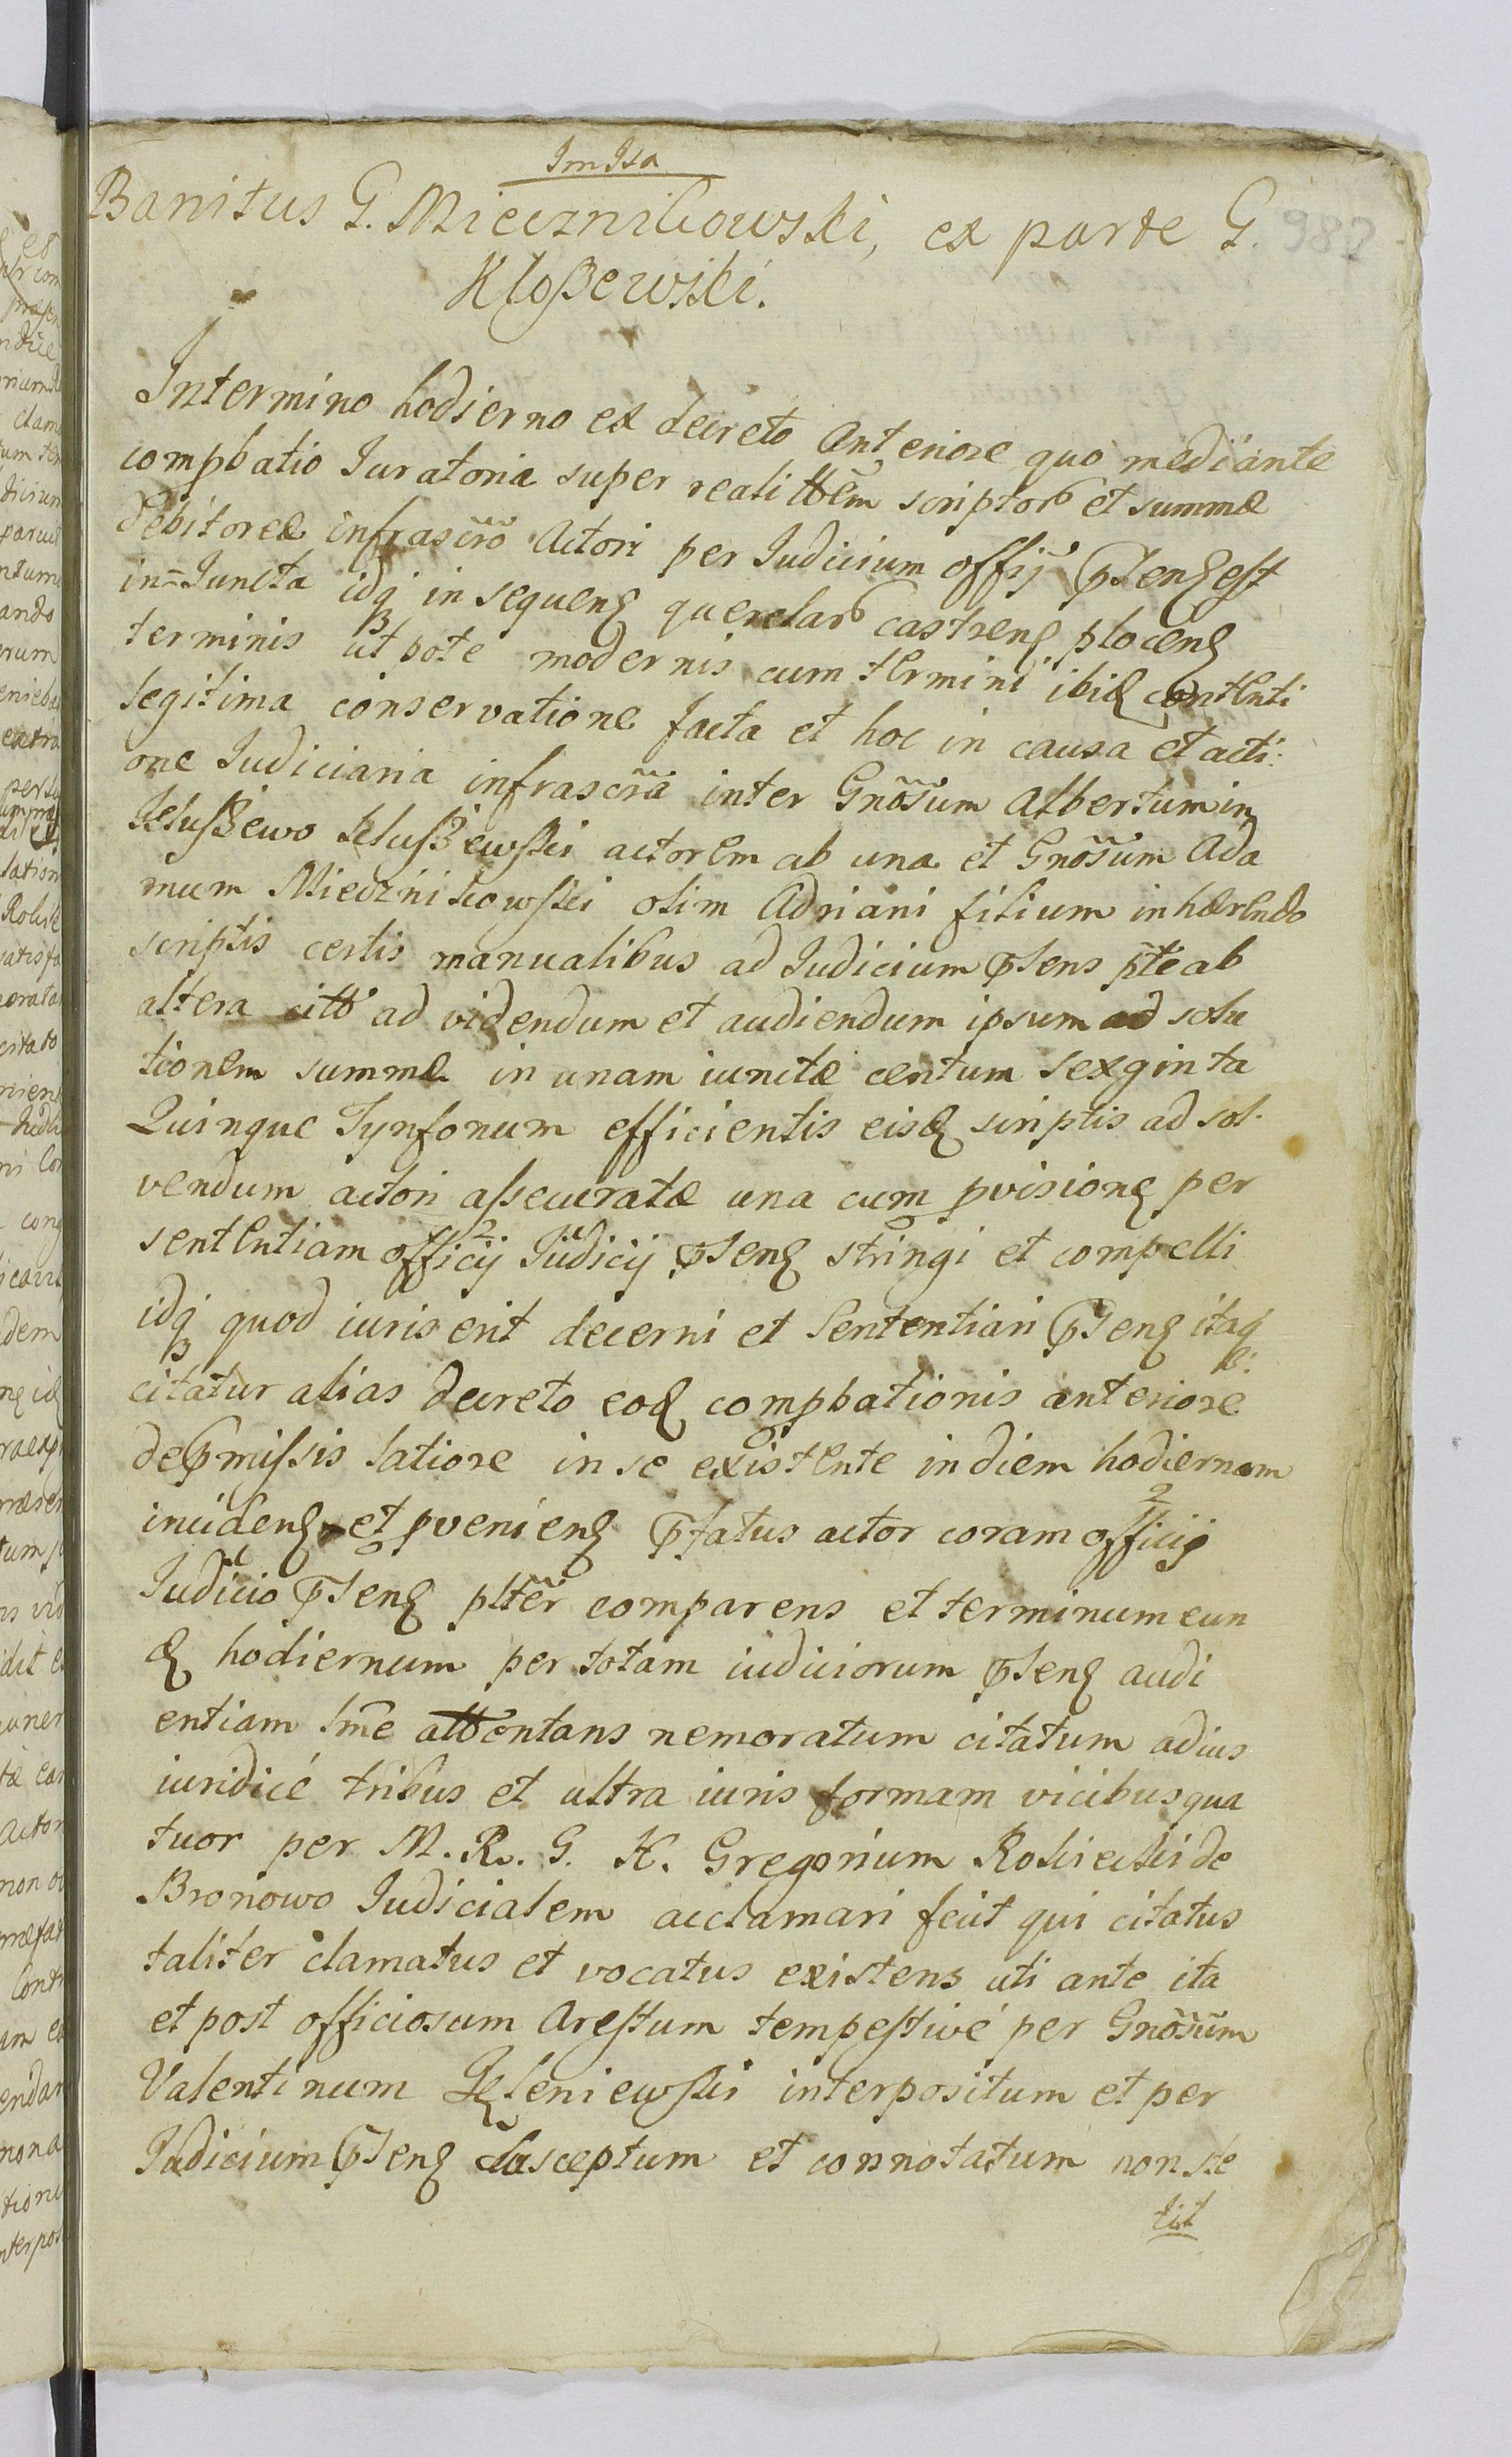 Banitus G. Miecznikowski, ex parte G. 982
Kloßewski.
Intermino hodierno ex decreto Anteriore quo mediante
compbatio Iuratoria super realittem scriptor et summæ
debitoreæ infrascro Actori per Iudicium offij psens est
in=Iuncta idq in sequens querelar castrens plocens
terminis ut pote modernis cum termini ibid contenti
legitima conservatione facta et hoc in causa et acti:
one Iudiciaria infrascra inter Gnosum Albertum in
actorem ab una et Gnosum Ada
mum Miecznikowski olim Adriani filium inhærendo
scriptis certis manualibus ad Iudicium psens pte ab
altera citt ad videndum et audiendum ipsum ad solu
tionem summæ in unam iunctæ centum sexginta
Quinque Tynfonum efficientis eisd scriptis ad sol.
vendum actori assecuratæ una cum pvisione per
sententiam officij Iudicij psens stringi et compelli
idq quod iuris erit decerni et Sententiari psens itaq
citatur alias decreto eod compbationis anteriore
de pmissis latiore in se existente in diem hodiernam
incidens et pveniens pfatus actor coram officij
Iudicio psens plter comparens et terminum eun
d hodiernum per totam iudiciorum psens audi
entiam lme attentans nemoratum citatum ad ius
iuridicé tribus et ultra iuris formam vicibus qua
tuor per M. R. G. K. Gregorium Rościecki de
Bronowo Iudicialem acclamari fecit qui citatus
taliter clamatus et vocatus existens uti ante ita
et post officiosum Arestum tempestivé per Gnosum
Valentinum interpositum et per
Iudicium psens susceptum et connotatum non ste
tit